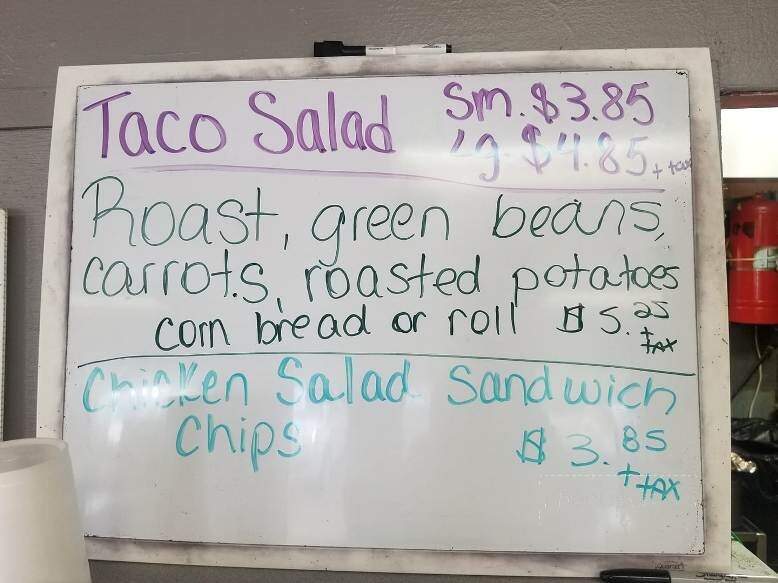 Taco Salad Sm. $3.85
Lg. $4.85 + tax
Roast, green beans,
carrots, roasted potatoes
corn bread or roll $5.25
+ TAX
Chicken Salad Sandwich
Chips $3.85
+ TAX